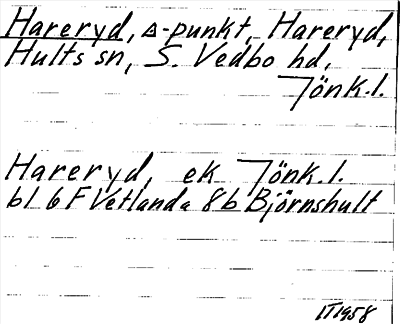 Hareryd, △-punkt, Hareryd,
Hults sn, S. Vedbo hd,
Jönk.l.
Hareryd, ek Jönk.l.
bl 6 F Vetlanda 8b Björnshult
IT1958